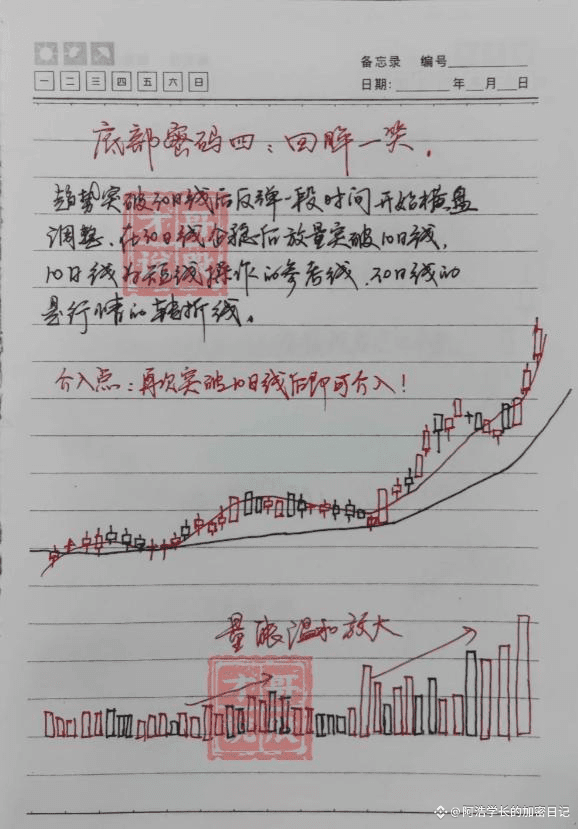 备忘录 编号
一 二 三 四 五 六 日
日期: 年 月 日
底部密码四：回眸一笑.
趋势突破30日线后反弹一段时间开始横盘
调整.在30日线企稳后放量突破10日线,
10日线为短线操作的参考线.30日线的
是行情的转折线。
介入点：再次突破10日线后即可介入！
量能温和放大
@阿浩学长的加密日记